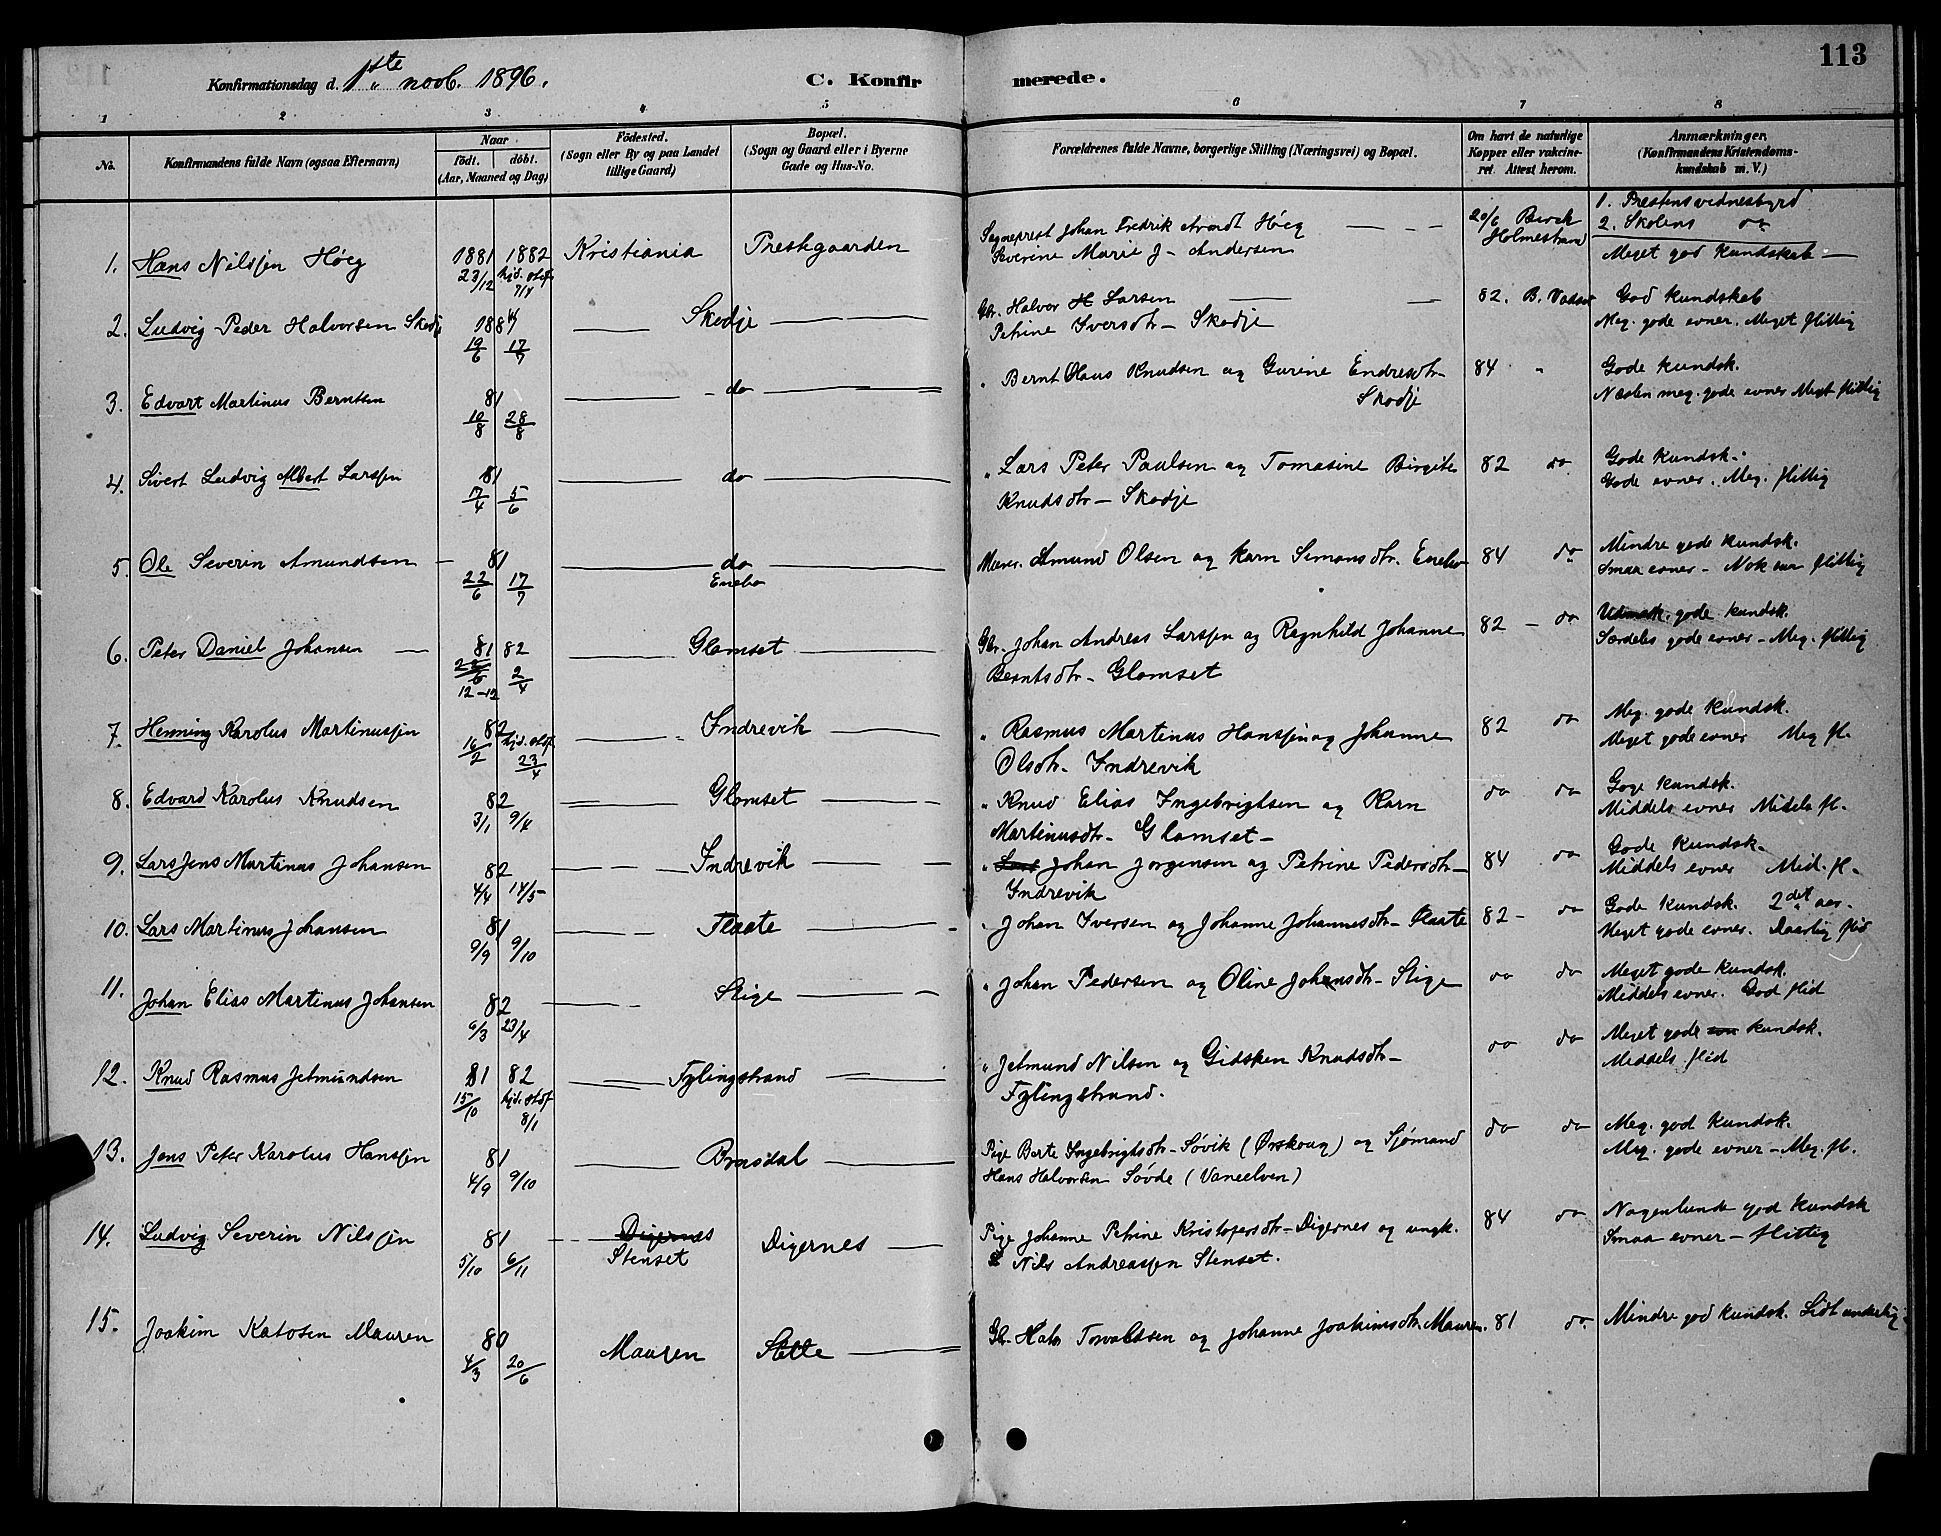 113
Konfirmationsdag d. 1ste novb. 1896.
C. Konfirmerede.
1 2 3 4 5 6 7 8
No.
Konfirmandens fulde Navn (ogsaa Efternavn)
Naar
födt. döbt.
(Aar, Maaned og Dag)
Födested.
(Sogn eller By og paa Landet
tillige Gaard)
Bopæl.
(Sogn og Gaard eller i Byerne
Gade og Hus-No.
Forældrenes fulde Navne, borgerlige Stilling (Næringsvei) og Bopæl.
Om havt de naturlige
Kopper eller vakcine-
ret. Attest herom.
Anmærkninger.
(Konfirmandens Kristendoms-
kundskab m. V.)
1. Prestens vidnesbyrd
2. Skolens do
1. Hans Nilssen Höeg 1881 23/12 1882 hjd. stdf. 7/4 Kristiania Prestgaarden
Sogneprest Johan Fredrik Arndt Höeg
Severine Marie J- Andersen
20/6 Birch
Holmestrand
Meget god kundskab
2. Ludvig Peder Halvorsen Skodje 1881 19/6 17/7 Skodje
Gbr. Halvor H Larsen
Petrine Iversdtr- Skodje
82. B. Vadset
God kundskab
Meg. gode evner. Meget flittig
3. Edvart Martinus Berntsen 81 10/8 28/8 do
" Bernt Olaus Knudsen og Gurine Endresdtr-
Skodje
84 "
Gode kundsk.
Næsten meg. gode evner Meget flittig
4. Sivert Ludvig Albert Larssen 81 7/4 5/6 do
" Lars Peter Paulsen og Tomasine Birgite
Knudsdtr- Skodje
82 do
Gode kundsk.
Gode evner. Meg. flittig
5. Ole Severin Amundsen 81 22/6 17/7 do
Enebo
Amund Olsen og Karn Simonsdtr. Enebo
84 do
Mindre gode kundsk.
Smaa evner - Nok saa flittig
6. Peter Daniel Johansen 81 12-12 82 2/4 Glomset
Gbr. Johan Andreas Larssen og Ragnhild Johanne
Berntsdtr- Glomset
82 - do
Udmærk. gode kundsk.
Særdeles gode evner - Meg. flittig
7. Henning Karolus Martinussen 82 16/2 hjd. stdf. 23/4 Indrevik
" Rasmus Martinus Hanssen og Johanne
Olsdtr- Indrevik
82 do
Meg. gode kundsk.
Meget gode evner Meg fl.
8. Edvard Karolus Knudsen 82 3/1 9/4 Glomset
" Knud Elias Ingebrigtsen og Karn
Martinusdtr- Glomset -
do do
Gode kundsk.
Middels evner Middels fl.
9. Lars Jens Martinus Johansen 82 4/4 14/5 Indrevik
" Lars Johan Jorgensen og Petrine Pedersdtr-
Indrevik
84 do
Gode kundsk.
Middels evner Mid. fl.
10. Lars Martinus Johansen 81 9/9 9/10 Flaate
" Johan Iversen og Johanne Johannesdtr- Flaate
82 - do
Gode kundsk. 2det aar.
Meget gode evner. Daarlig flid
11. Johan Elias Martinus Johansen 82 6/3 23/4 Stige
" Johan Pedersen og Oline Johansdtr- Stige
do do
Meget gode kundsk.
Middels evner. God flid
12. Knud Rasmus Jetmundsen 81 15/10 82 hjd. stdf. 8/1 Fylingstrand
" Jetmund Nilsen og Gidsken Knudsdtr-
Fylingstrand.
do do
Meget gode kundsk.
Middels flid
13. Jens Peter Karolus Hanssen 81 4/9 9/10 Brusdal
Pige Berte Ingebrigtsdtr- Søvik (Ørskoug) og Sjömand
Hans Halvorsen Søvde (Vaneelven)
do do
Meg. god kundsk.
Meg. gode evner - Meg. fl.
14. Ludvig Severin Nilssen 81 5/10 6/11 Digernes Digernes
Stenset
Pige Johanne Petrine Kristofersdtr- Digernes og ungk.
Nils Andreassen Stenset.
84 do
Nogenlunde god kundsk
Smaa evner - flittig
15. Joakim Katosen Mauren 80 4/3 20/6 Mauren Stette
Gbr. Torvaldsen og Johanne Joakimsdtr. Mauren.
81 do
Mindre god kundsk. Lidt underlig.